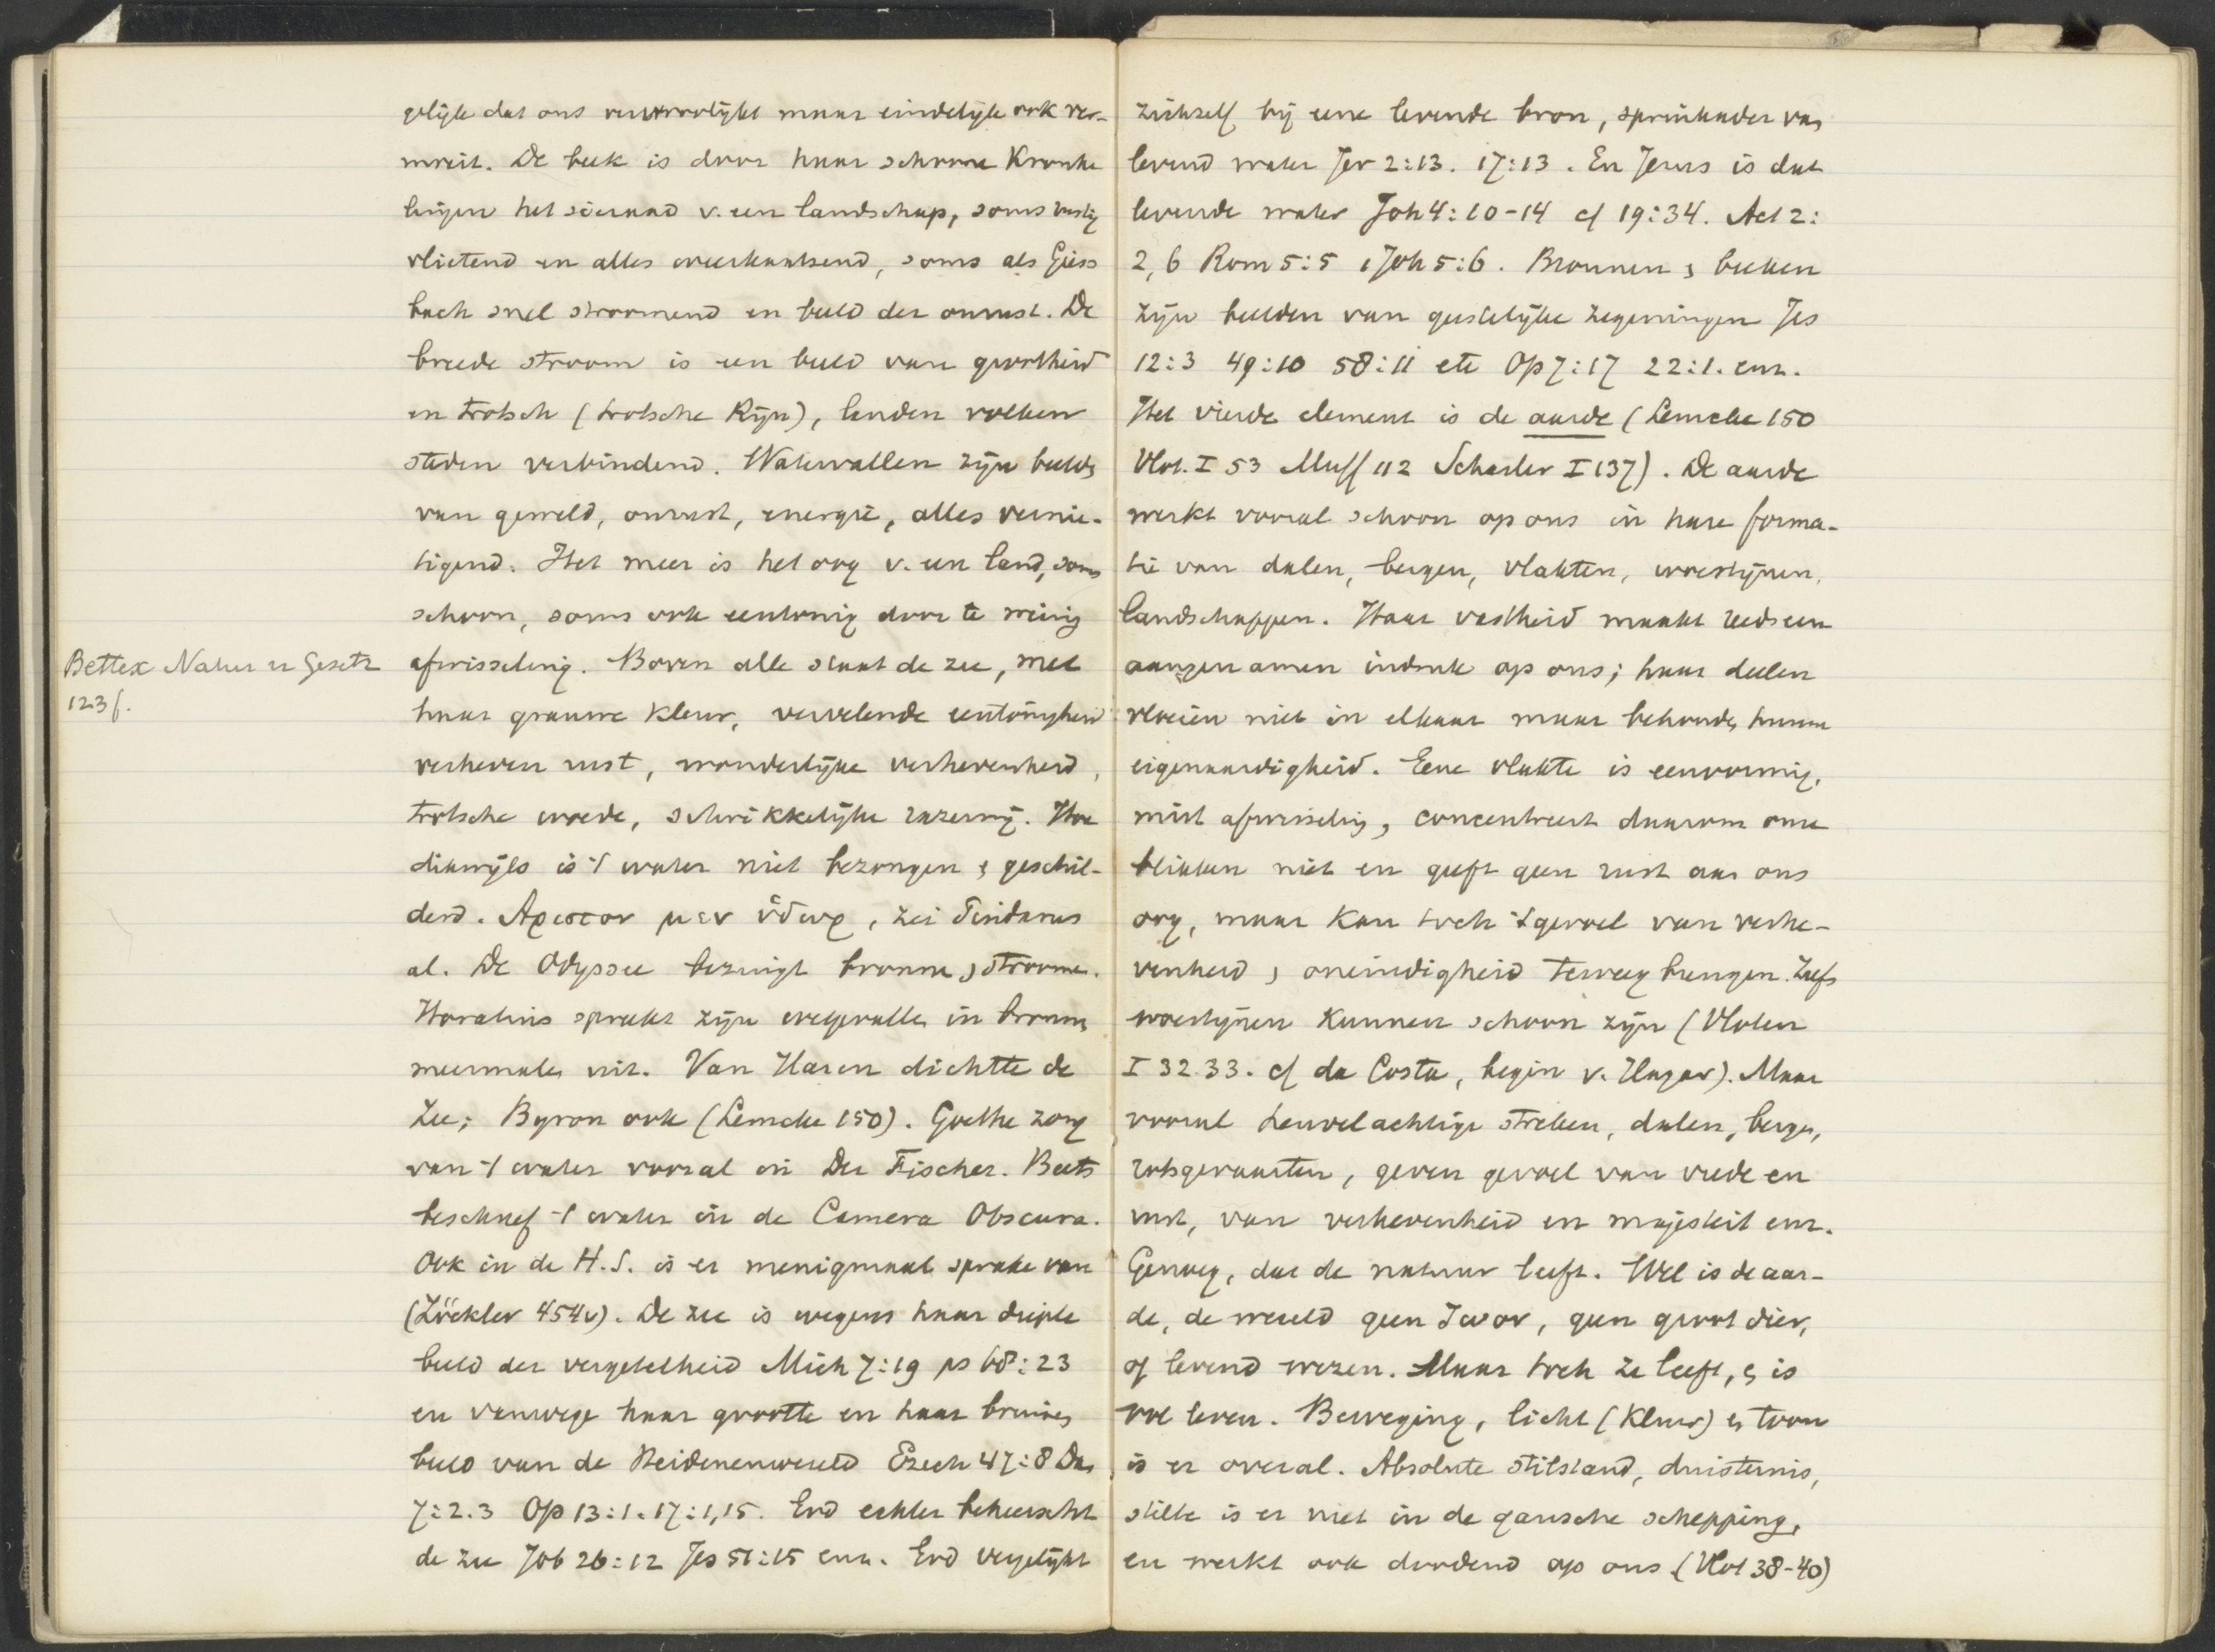 gelijk dat ons vervroolijkt maar eindelijk ook ver-
moeit. De beek is door haar schoone Kronke
lingen het sieraad v. een landschap, soms rustig
vlietend en alles weerkaatsend, soms als Giess
bach snel stroomend en beeld der onrust. De
breede stroom is een beeld van grootheid
en trotsch (trotsche Rijn), landen volken
steden verbindend. Watervallen zijn beelden
van geweld, onrust, energie, alles vernie-
tigend. Het meer is het oog v. een land, soms
schoon, soms ook eentonig door te weinig
afwisseling. Boven alle staat de zee, met
haar grauwe kleur, vervelende eentonigheid
verheven rust, wonderlijke verhevenheid,
trotsche woede, schrikkelijke razernij. Hoe
dikwijls is 't water niet bezongen & geschil-
derd. Αριστον μεν ὕδωρ, zei Pindarus
al. De Odyssee bezingt bronnen, stroomen.
Horatius spreekt zijn welgevallen in bronnen
meermalen uit. Van Haren dichtte de
Zee; Byron ook (Lemcke 150). Goethe zong
van 't water vooral in Der Fischer. Beets
beschreef 't water in de Camera Obscura.
Ook in de H.S. is er menigmaal sprake van
(Zöckler 454v). De zee is wegens haar diepte
beeld der vergetelheid Mich 7:19 ps 68:23
en vanwege haar grootte en haar bruisen
beeld van de Heidenenwereld Ezech 47:8 Dan
7:2.3 Op 13:1. 17:1,15. God echter beheerscht
de zee Job 26:12 Jes 51:15 enz. God vergelijkt
Bettex Natur u Gesetz
123f.
zichzelf bij eene levende bron, springader van
levend water Jer 2:13. 17:13. En Jezus is dat
levende water Joh 4:10-14 cf 19:34. Act 2:
2,6 Rom 5:5 1 Joh 5:6. Bronnen & beeken
zijn beelden van geestelijke zegeningen Jes
12:3 49:10 58:11 etc Op 7:17 22:1. enz.
Het vierde element is de aarde (Lemcke 150
Vlot. I 53 Muff 112 Schasler I 137). De aarde
werkt vooral schoon op ons in hare forma-
tie van dalen, bergen, vlakten, woestijnen,
landschappen. Haar vastheid maakt reeds een
aangenamen indruk op ons; haar deelen
vloeien niet in elkaar maar behouden hunne
eigenaardigheid. Eene vlakte is eenvormig,
mist afwisseling, concentreert daarom onze
blikken niet en geeft geen rust aan ons
oog, maar kan toch 't gevoel van verhe-
venheid & oneindigheid teweeg brengen. Zelfs
woestijnen kunnen schoon zijn (Vloten
I 32.33. cf da Costa, begin v. Hagar). Maar
vooral heuvelachtige streken, dalen, bergen,
rotsgevaarten, geven gevoel van vrede en
rust, van verhevenheid en majesteit enz.
Genoeg, dat de natuur leeft. Wel is de aar-
de, de wereld geen ζωον, geen groot dier,
of levend wezen. Maar toch ze leeft, & is
vol leven. Beweging, licht (Kleur) & toon
is er overal. Absolute stilstand, duisternis,
stilte is er niet in de gansche schepping,
en werkt ook doodend op ons (Vlot 38-40)